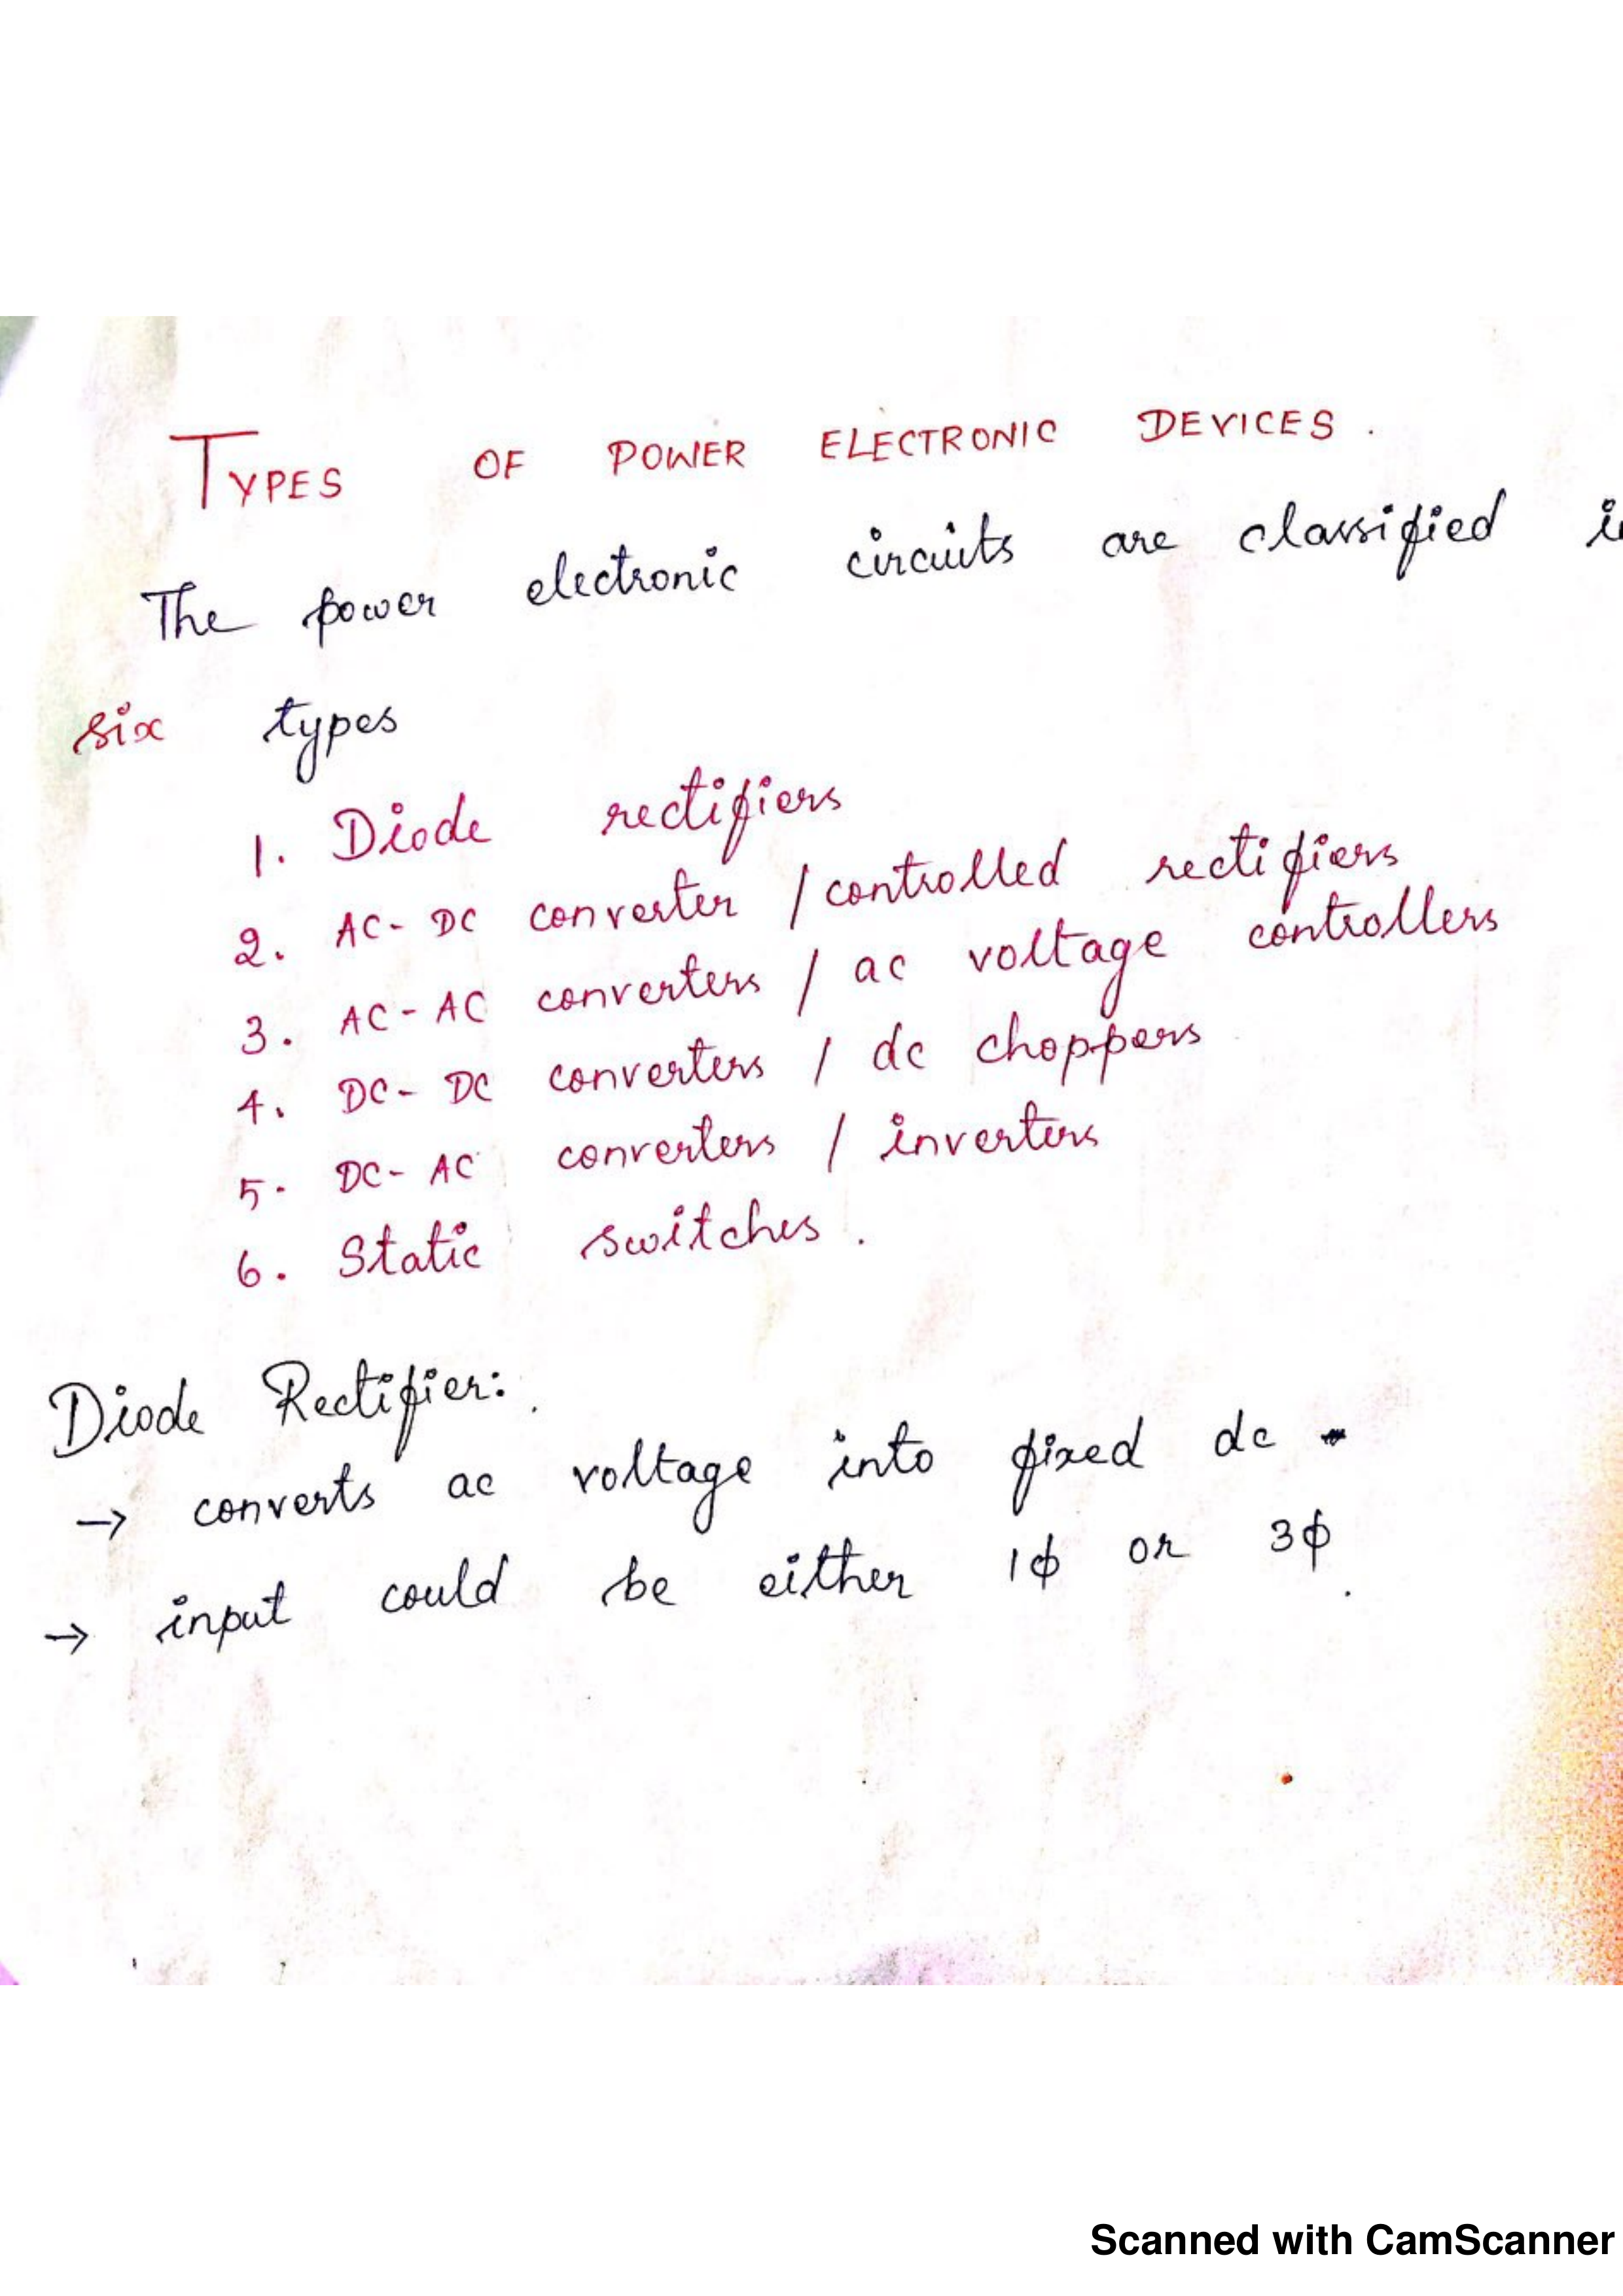 TYPES OF POWER ELECTRONIC DEVICES.
The power electronic circuits are classified
six types
1. Diode rectifiers
2. AC-DC converter / controlled rectifiers
3. AC-AC converters / ac voltage controllers
4. DC-DC converters / dc choppers
5. DC-AC converters / inverters
6. Static switches.
Diode Rectifier:
→ converts ac voltage into fixed dc
→ input could be either 1ϕ or 3ϕ.
Scanned with CamScanner